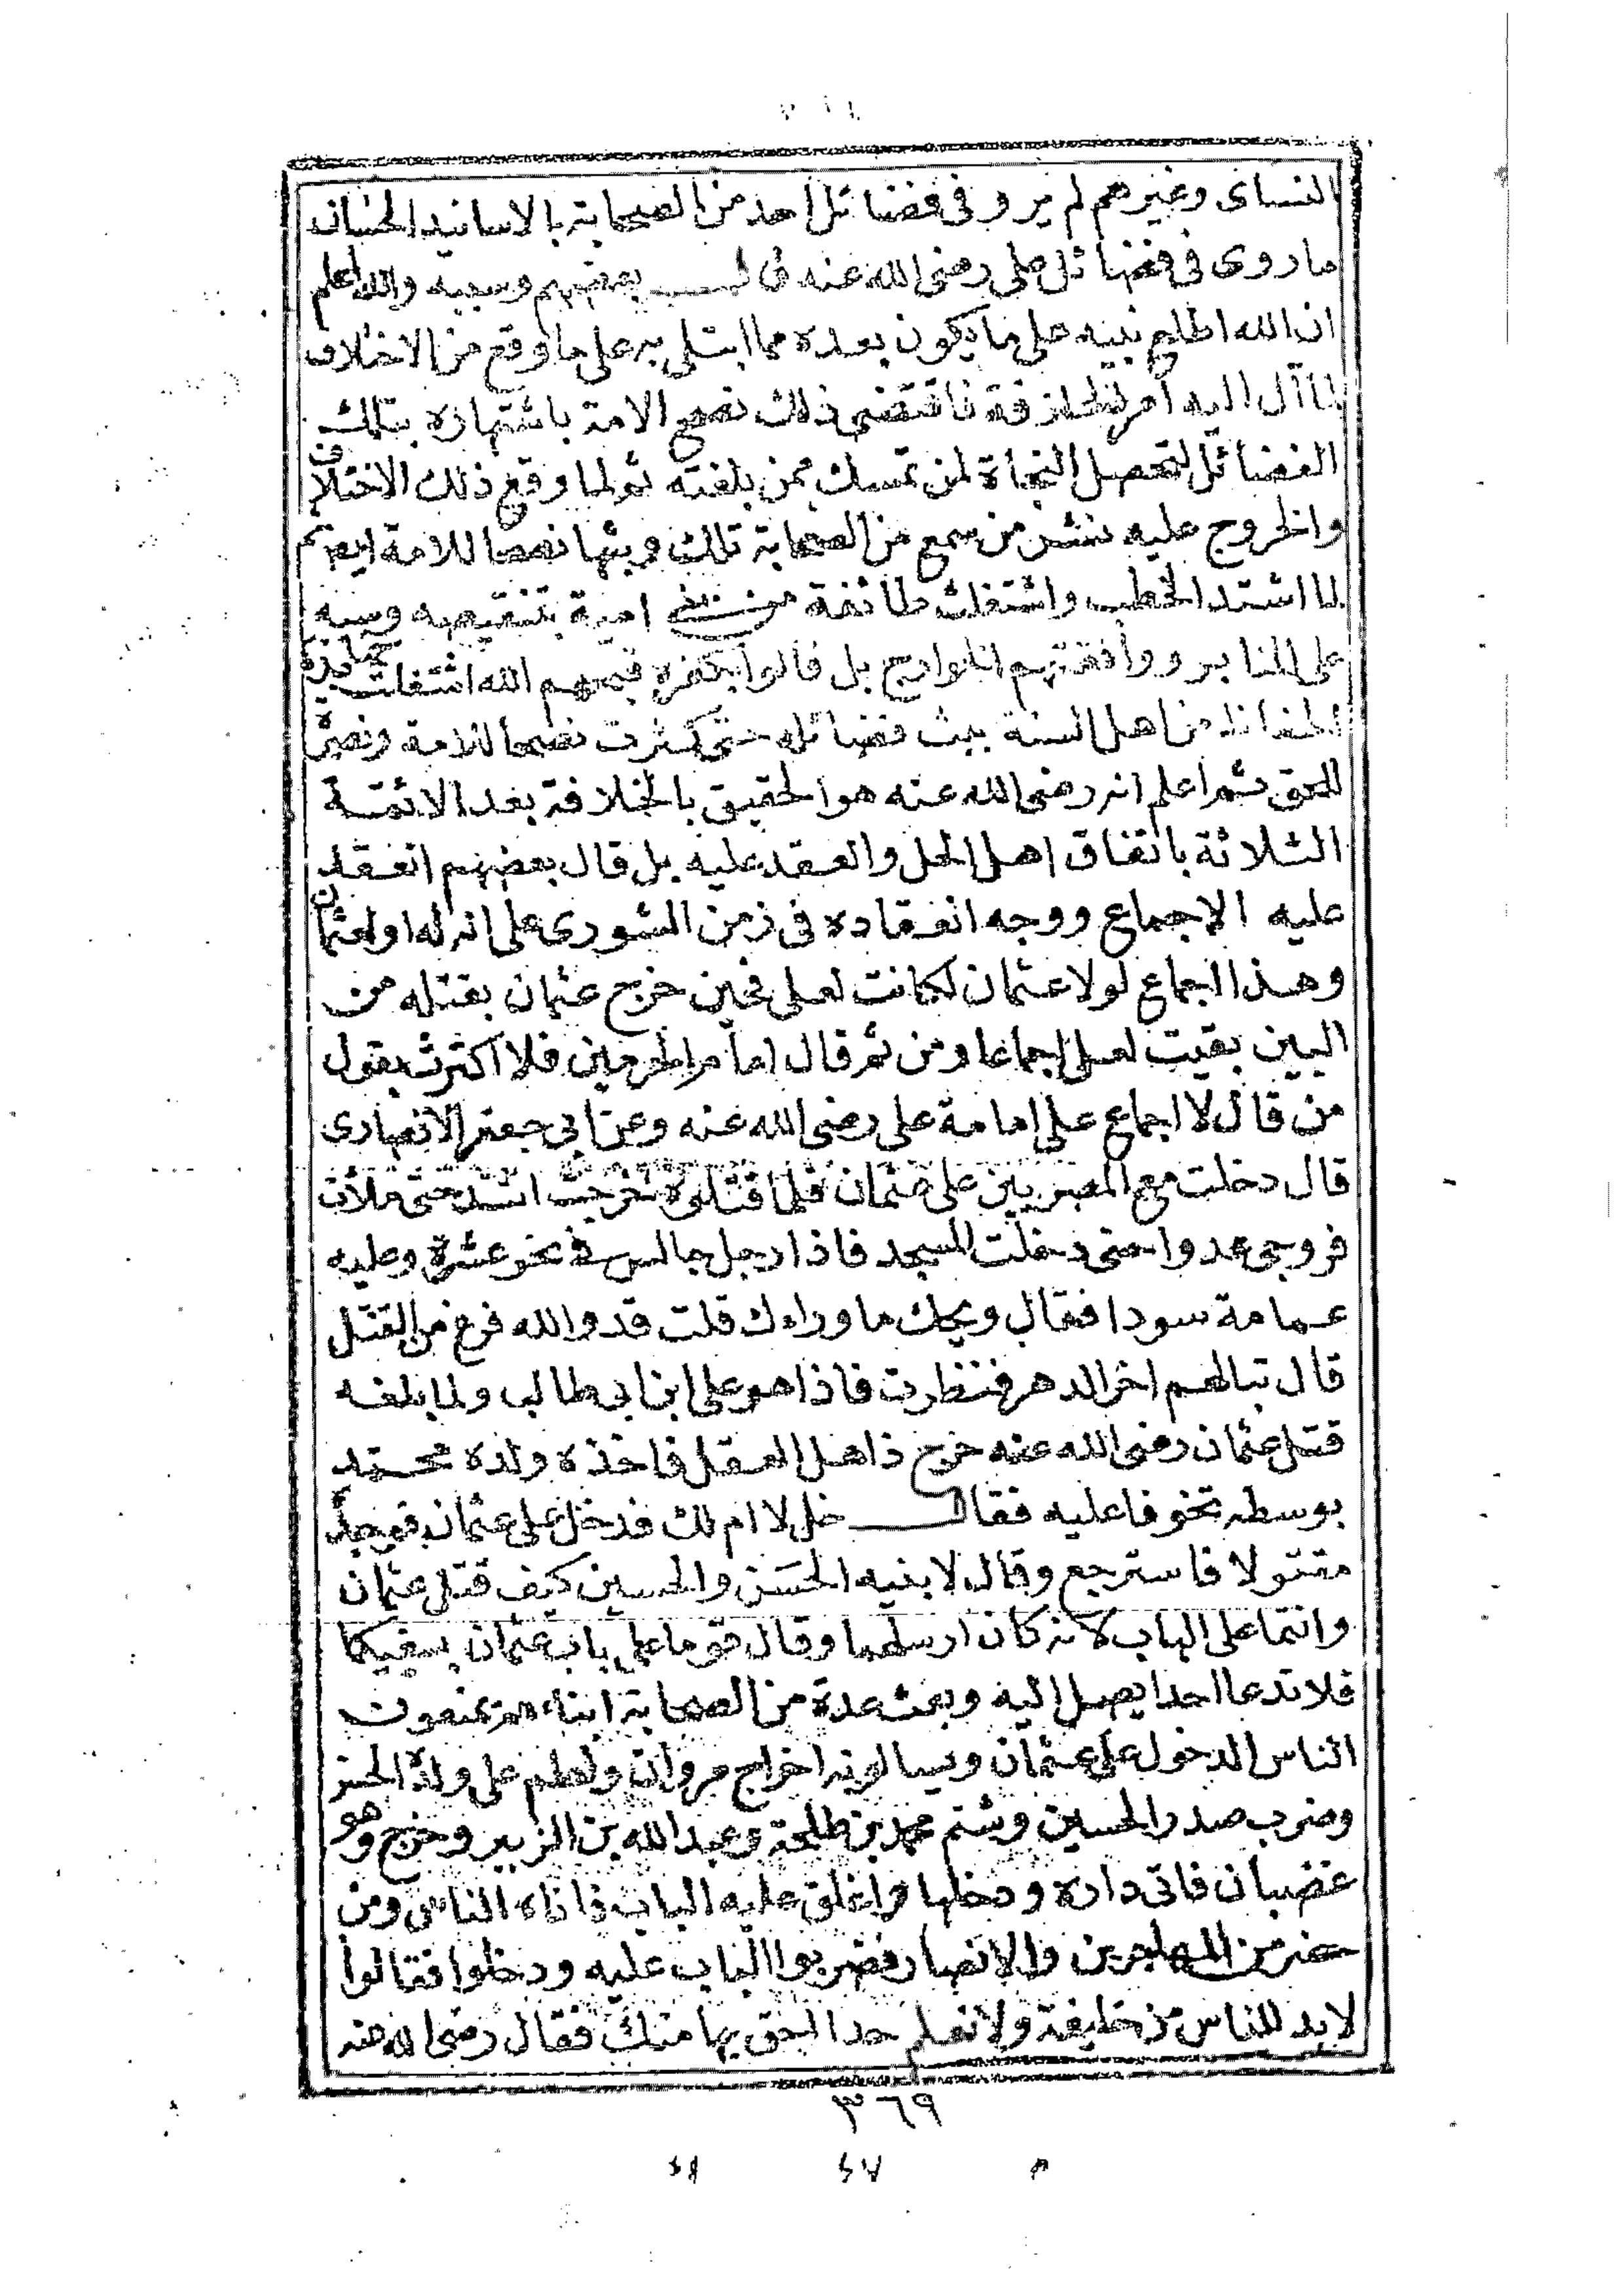 النساى وغيرهم لم يرو فى فضائل احد من الصحابة بالاسانيد الحسان
ما روى فى فضائل على رضى الله عنه قال بعضهم وسببه والله اعلم
ان الله اطلع نبيه على ما يكون بعده مما ابتلى به على ما وقع من الاختلاف
لما آل اليه امر الخلافة فاقتضى ذلك نصح الامة باشتهاره بتلك
الفضائل لتحصل النجاة لمن تمسك ممن بلغته ثم لما وقع ذلك الاختلاف
والخروج عليه نشر من سمع من الصحابة تلك وبثها نصحا للامة ايضا ثم
لما اشتد الخطب واشتغلت طائفة من بنى امية بتنقيصه وسبه
على المنابر ووافقتهم الخوارج بل قالوا بكفره قبحهم الله اشتغلت جهابذة
الحفاظ من اهل السنة ببث فضائله حتى كثرت نصحا للامة ونصرة
للحق ثم اعلم انه رضى الله عنه هو الحقيق بالخلافة بعد الائمة
الثلاثة باتفاق اهل الحل والعقد عليه بل قال بعضهم انعقد
عليه الاجماع ووجه انعقاده فى زمن الشورى على انه له او لعثمان
وهذا اجماع لولا عثمان لكانت لعلى فحين خرج عثمان بقتله من
البين بقيت لعلى اجماعا ومن ثم قال امام الحرمين فلا اكترث بقول
من قال لا اجماع على امامة على رضى الله عنه وعن ابى جعفر الانصارى
قال دخلت مع المصريين على عثمان فلما قتلوه خرجت اشتد حتى ملأت
فروجى عدوا حتى دخلت المسجد فاذا رجل جالس فى نحو عشرة وعليه
عمامة سودا فقال ويحك ما وراءك قلت قد والله فرغ من القتل
قال تبالهم اخر الدهر فنظرت فاذا هو على ابن ابى طالب ولما بلغه
قتل عثمان رضى الله عنه خرج ذاهل العقل فاخذه ولده محمد
بوسطه تخوفا عليه فقال خل لا ام لك فدخل على عثمان فوجده
مقتولا فاسترجع وقال لابنيه الحسن والحسين كيف قتل عثمان
وانتما على الباب لانه كان ارسلهما وقال قوما على باب عثمان بسيفيكما
فلا تدعا احدا يصل اليه وبعث عدة من الصحابة ابناءهم يمنعون
الناس الدخول على عثمان ويسالونه اخراج مروان ولطم على ولده الحسن
وضرب صدر الحسين وشتم محمد بن طلحة وعبد الله بن الزبير وخرج وهو
غضبان فاتى داره ودخلها واغلق عليه الباب فاتاه الناس ومن
حضر من المهاجرين والانصار فضربوا الباب عليه ودخلوا فقالوا
لا بد للناس من خليفة ولا نعلم احدا احق بها منك فقال رضى الله عنه
٣٦٩